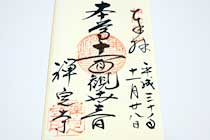 奉拝
平成三十年
十一月廿八日
本尊十一面観世音
禅定寺